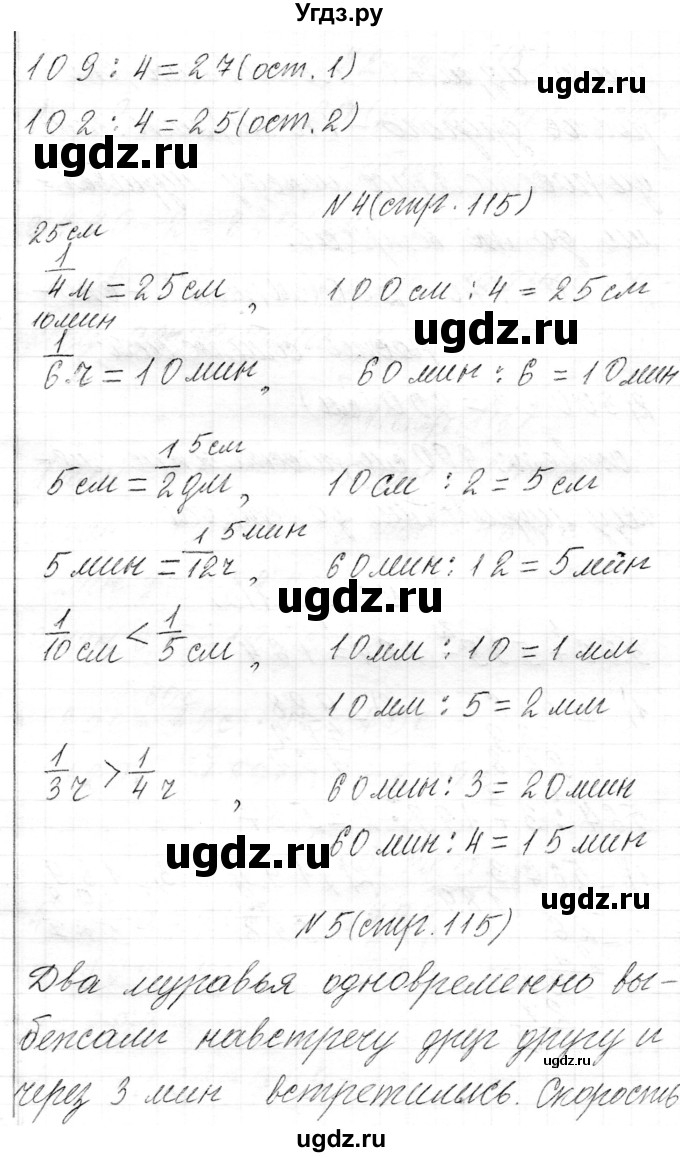 Угдз.ру
109 : 4 = 27 (ост. 1)
102 : 4 = 25 (ост. 2)
ugdz.ru
ugdz.ru
N 4 (стр. 115)
25 см
1/4 м = 25 см, 100 см : 4 = 25 см
ugdz.ru
10 мин
1/6 ч = 10 мин, 60 мин : 6 = 10 мин
5 см
5 см = 1/2 дм, 10 см : 2 = 5 см
5 мин
5 мин = 1/12 ч, 60 мин : 12 = 5 мин
ugdz.ru
1/10 см < 1/5 см, 10 мм : 10 = 1 мм
10 мм : 5 = 2 мм
1/3 ч > 1/4 ч, 60 мин : 3 = 20 мин
60 мин : 4 = 15 мин
ugdz.ru
ugdz.ru
N 5 (стр. 115)
Два муравья одновременно вы-
бежали навстречу друг другу и
ugdz.ru
через 3 мин встретились. Скорость
ugdz.ru